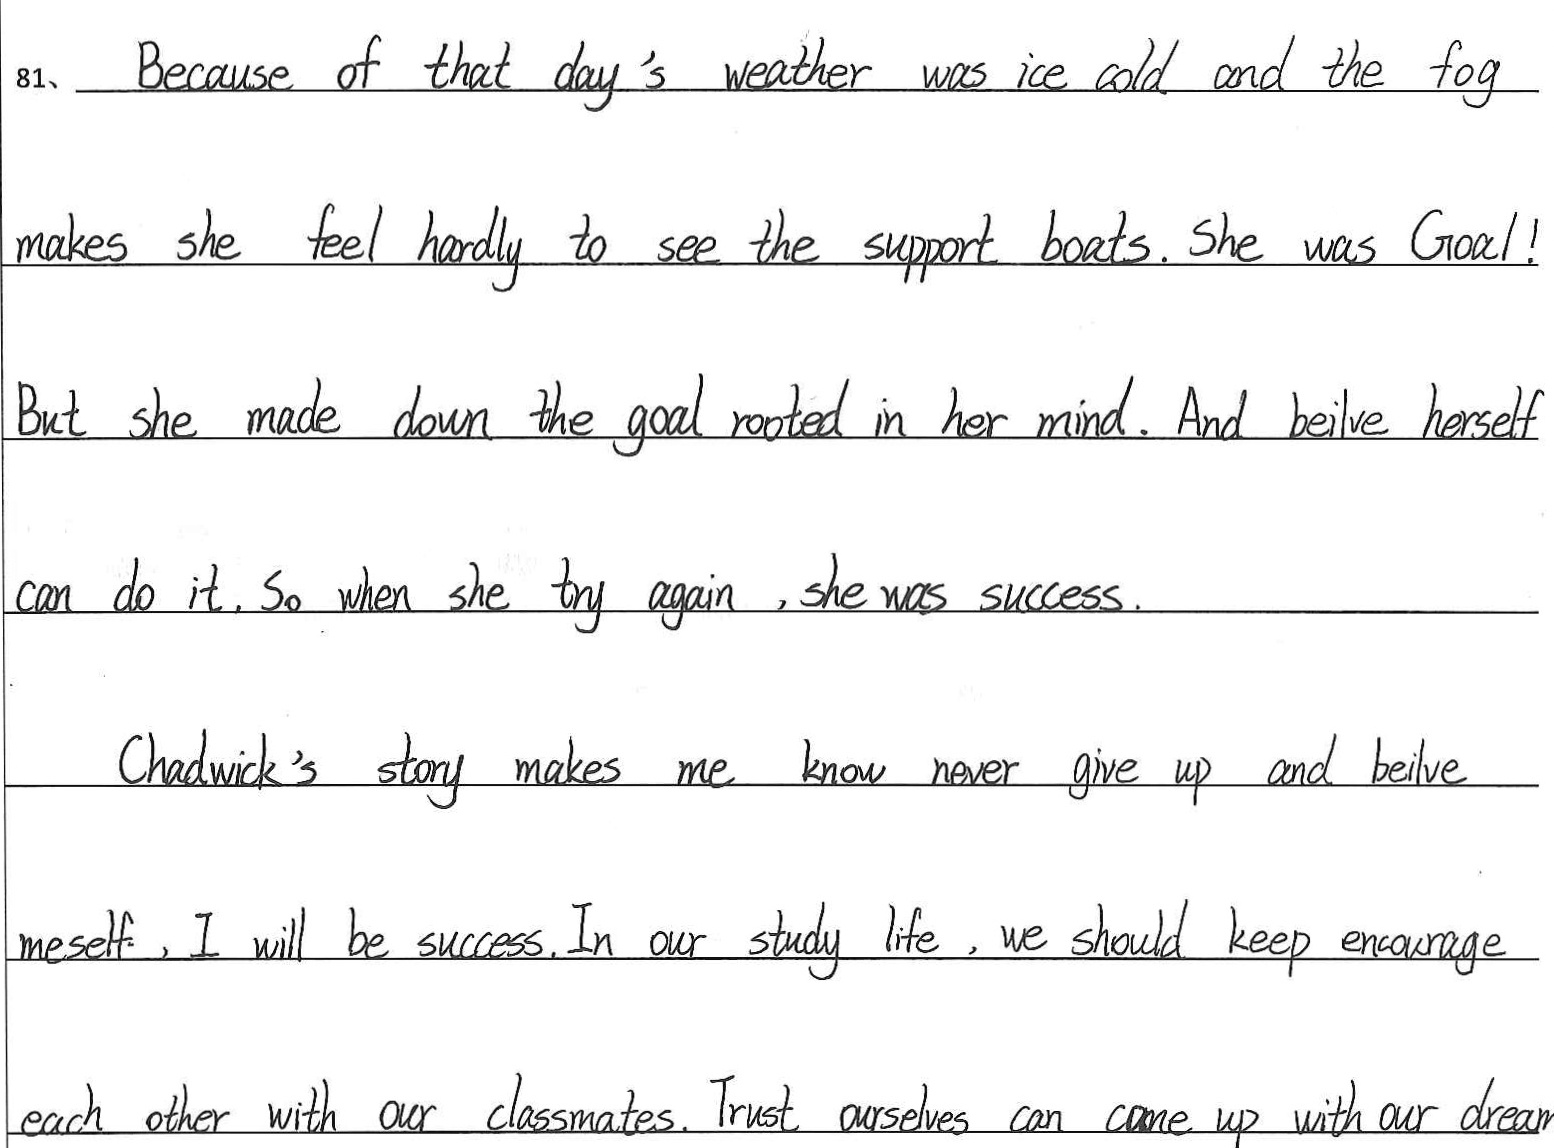 81、 Because of that day's weather was ice cold and the fog
makes she feel hardly to see the support boats. She was Goal!
But she made down the goal rooted in her mind. And beilve herself
can do it. So when she try again , she was success.
Chadwick's story makes me know never give up and beilve
meself , I will be success. In our study life , we should keep encourage
each other with our classmates. Trust ourselves can come up with our dream